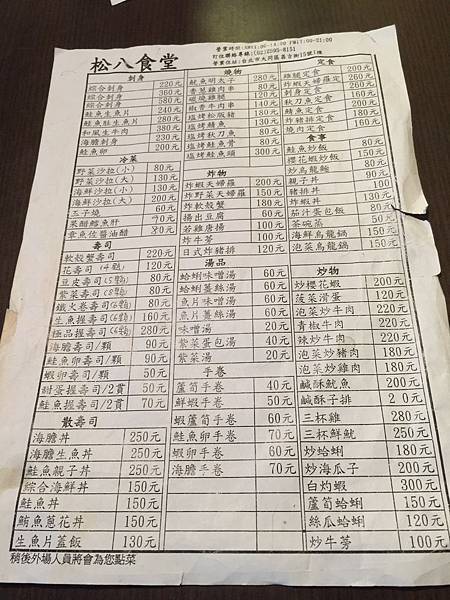 松八食堂
營業時間:AM11:00-14:00 PM17:00-21:00
訂位聯絡專線:(02)2595-8151
營業住址:台北市大同區昌吉街15號1樓
刺身
綜合刺身 220元
綜合刺身 360元
綜合刺身 580元
鮭魚生魚片 240元
鮭魚肚生魚片 280元
和風生牛肉 380元
海膽刺身 230元
鮭魚卵 200元
冷菜
野菜沙拉(小) 80元
野菜沙拉(大) 130元
海鮮沙拉(小) 130元
海鮮沙拉(大) 200元
玉子燒 60元
果醋鱈魚肝 70元
章魚位醬油醋 20元
壽司
軟殼蟹壽司 220元
花壽司(4顆) 120元
豆皮壽司(5顆) 80元
紫菜壽司(8顆) 80元
鐵火卷壽司(6顆) 80元
生魚握壽司(6顆) 160元
極品握壽司(6顆) 280元
海膽壽司/顆 90元
鮭魚卵壽司/顆 90元
蝦卵壽司/顆 50元
甜蛋握壽司/2貫 50元
鮭魚握壽司/2貫 70元
散壽司
海膽丼 250元
海膽生魚丼 250元
鮭魚親子丼 250元
綜合海鮮丼 150元
鮭魚丼 150元
鮪魚蔥花丼 150元
生魚片蓋飯 130元
稍後外場人員將會為您點菜
燒物
魷魚明太子 280元
香蔥雞肉串 80元
碳燒雞腿 120元
椒香牛肉串 140元
塩烤松阪豬 180元
塩烤鯖魚 130元
塩烤秋刀魚 80元
塩烤鮭魚骨 80元
塩烤鮭魚頭 300元
炸物
炸蝦天婦羅 200元
炸野菜天婦羅 150元
炸軟殼蟹 180元
揚出豆腐 60元
若雞唐揚 100元
炸牛蒡 100元
日式炸豬排 120元
湯品
蛤蜊味噌湯 60元
蛤蜊薑絲湯 60元
魚片味噌湯 60元
魚片薑絲湯 60元
味噌湯 20元
紫菜蛋包湯 40元
紫菜湯 20元
手卷
蘆筍手卷 40元
鮮蝦手卷 50元
蝦蘆筍手卷 60元
鮭魚卵手卷 70元
蝦卵手卷 60元
海膽手卷 70元
定食
雞腿定食 200元
炸蝦天婦羅定食 260元
刺身定食 260元
秋刀魚定食 160元
鯖魚定食 200元
炸豬排定食 200元
燒肉定食 200元
食事
鮭魚炒飯 80元
櫻花蝦炒飯 150元
炒烏龍麵 80元
親子丼 90元
豬排丼 100
炸蝦丼 80元
茄汁蛋包飯 80元
茶碗蒸 50元
海鮮烏龍鍋 150元
泡菜烏龍鍋 150元
炒物
炒櫻花蝦 200元
菠菜滑蛋 120元
泡菜炒牛肉 220元
青椒牛肉 220元
辣炒牛肉 220元
泡菜炒豬肉 180元
泡菜炒雞肉 180元
鹹酥魷魚 200元
鹹酥子排 20元
三杯雞 280元
三杯鮮魷 250元
炒蛤蜊 180元
炒海瓜子 200元
白灼蝦 300元
蘆筍蛤蜊 150元
絲瓜蛤蜊 120元
炒牛蒡 100元